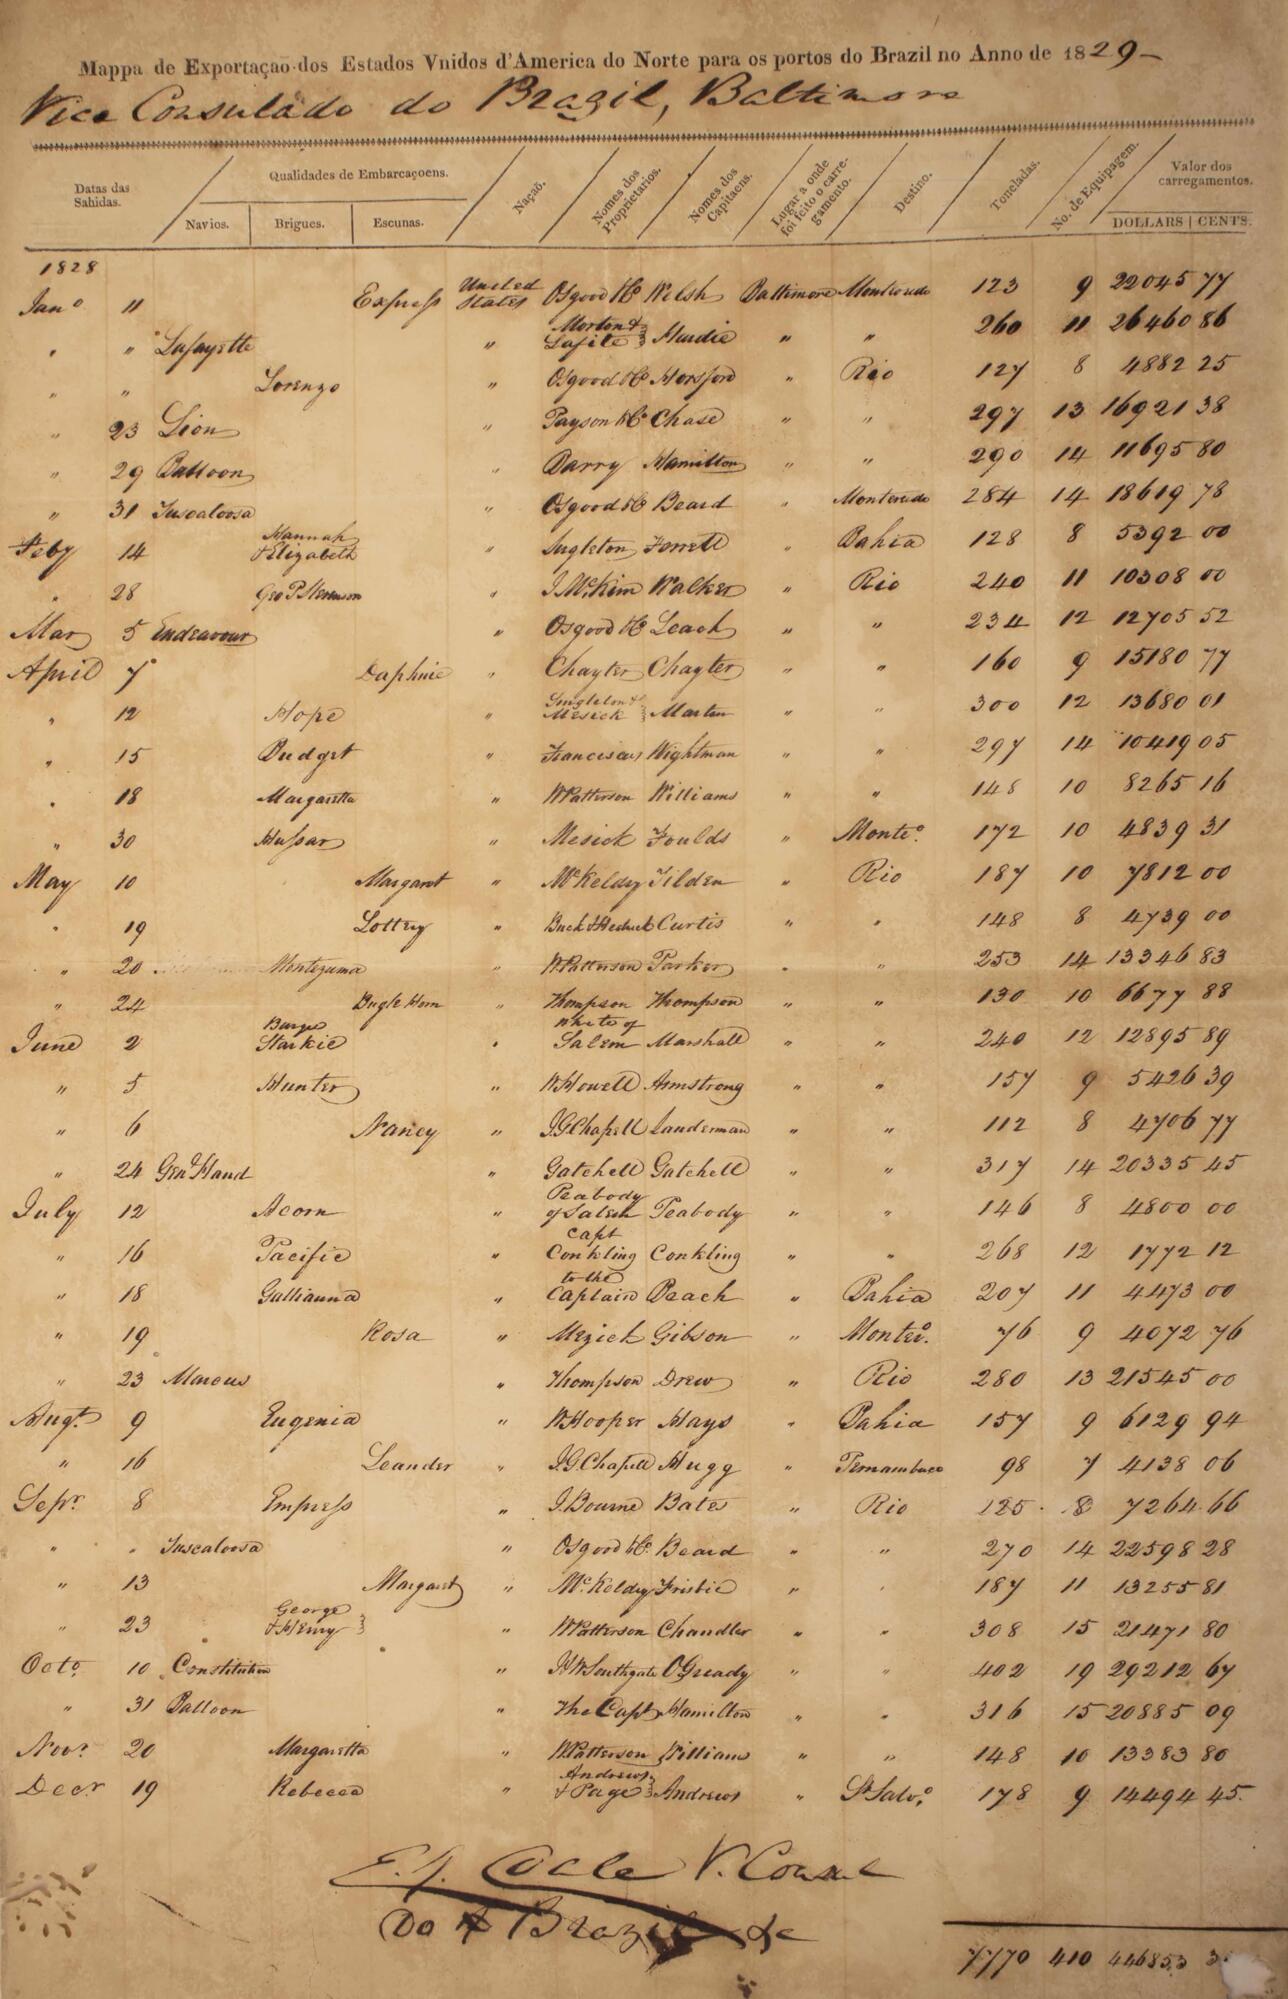 Mappa de Exportaçaõ dos Estados Vnidos d'America do Norte para os portos do Brazil no Anno de 1829-
Vice Consulado do Brazil, Baltimore
Datas das Sahidas. Qualidades de Embarcaçoens. Navios. Brigues. Escunas. Naçaõ. Nomes dos Proprietarios. Nomes dos Capitaens. Lugar a onde foi feito o carregamento. Destino. Toneladas. No. de Equipagem. Valor dos carregamentos. DOLLARS CENTS.
1828
Jano 11 Express United States Osgood & Co Welsh Baltimore Montivudo 123 9 22045 77
" " Lafayette " Morton & Lafite Hardie " " 260 11 26460 86
" " Lorenzo " Osgood & Co Horsford " Rio 127 8 4882 25
" 23 Lion " Payson & Co Chase " " 297 13 16921 38
" 29 Balloon " Barry Hamilton " " 290 14 11695 80
" 31 Tuscaloosa " Osgood & Co Beard " Montevudo 284 14 18619 78
Feby 14 Hannah & Elizabeth " Singleton Ferrell " Bahia 128 8 5392 00
" 28 Geo P Stevenson " I. McKim Walker " Rio 240 11 10308 00
Mar 5 Endeavour " Osgood & Co Leach " " 234 12 12705 52
April 7 Daphnie " Chayter Chayter " " 160 9 15180 77
" 12 Hope " Singleton & Mesick Marten " " 300 12 13680 01
" 15 Budget " Franciscus Wightman " " 297 14 10419 05
" 18 Margaretta " W Patterson Williams " " 148 10 8265 16
" 30 Hussar " Mesick Foulds " Monteo. 172 10 4839 31
May 10 Margaret " McKeldey Tilden " Rio 187 10 7812 00
" 19 Lottery " Buck & Hedrick Curtis " " 148 8 4739 00
" 20 Montezuma " W Patterson Parker " " 253 14 13346 83
" 24 Bugle Horn " Thompson Thompson " " 130 10 6677 88
June 2 Burges Starkie " White of Salem Marshall " " 240 12 12895 89
" 5 Hunter " W Howell Armstrong " " 157 9 5426 39
" 6 Nancy " J. G Chapell Landerman " " 112 8 4706 77
" 24 Genl Hand " Gatchell Gatchell " " 317 14 20335 45
July 12 Acorn " Peabody of Salem Peabody " " 146 8 4800 00
" 16 Pacific " Capt Conkling Conkling " " 268 12 1772 12
" 18 Gallianna " to the Captain Beach " Bahia 207 11 4473 00
" 19 Rosa " Mezick Gibson " Monteo. 76 9 4072 76
" 23 Marcus " Thompson Drew " Rio 280 13 21545 00
Augt. 9 Eugenia " W Hooper Hays " Bahia 157 9 6129 94
" 16 Leander " J. G Chapell Hugg " Pernambuco 98 7 4138 06
Sepr. 8 Empress " J. Bourne Bates " Rio 125 8 7264 66
" " Tuscaloosa " Osgood & Co. Beard " " 270 14 22598 28
" 13 Margaret " McKeldey Frisbie " " 187 11 13255 81
" 23 George & Henry " W Patterson Chandler " " 308 15 21471 80
Octo. 10 Constitution " J W Southgate O Gready " " 402 19 29212 67
" 31 Balloon " The Capt Hamilton " " 316 15 20885 09
Novr. 20 Margaretta " W Patterson Williams " " 148 10 13383 80
Decr 19 Rebecca " Andrews & Page Andrews " St Salvo. 178 9 14494 45.
V. Consul
Do Brazil &c
7770 410 446853 3